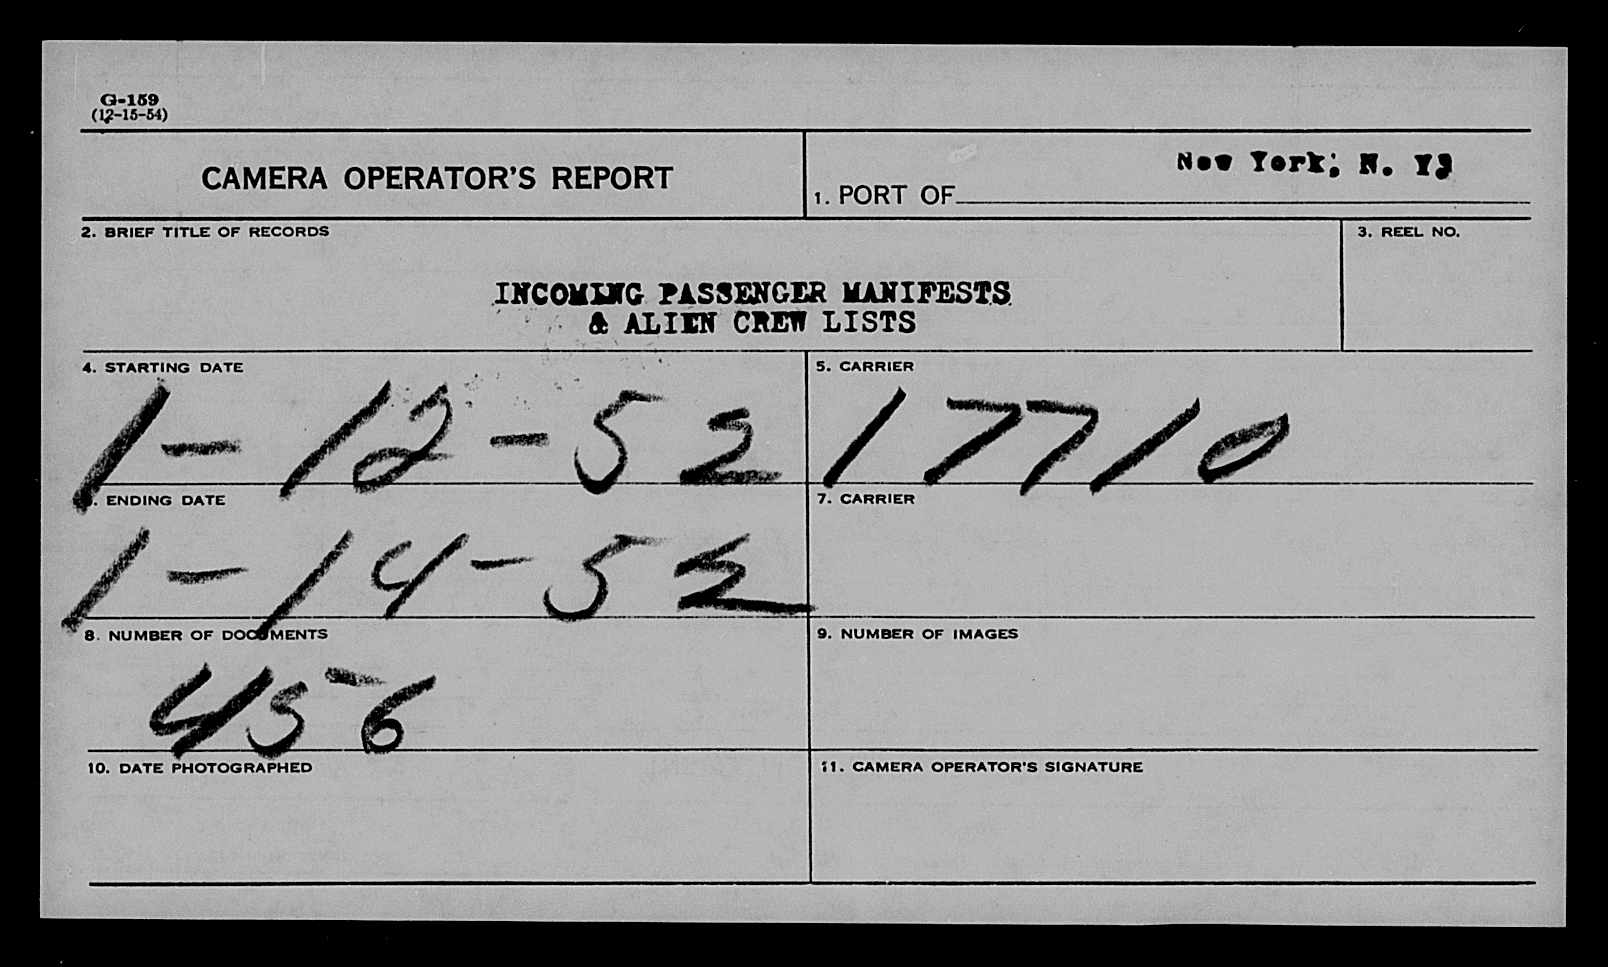 G-159
(12-15-54)
CAMERA OPERATOR'S REPORT
1. PORT OF New York, N. Y.
2. BRIEF TITLE OF RECORDS
3. REEL NO.
INCOMING PASSENGER MANIFESTS
& ALIEN CREW LISTS
4. STARTING DATE
1-12-52
5. CARRIER
17710
6. ENDING DATE
1-14-52
7. CARRIER
8. NUMBER OF DOCUMENTS
456
9. NUMBER OF IMAGES
10. DATE PHOTOGRAPHED
11. CAMERA OPERATOR'S SIGNATURE